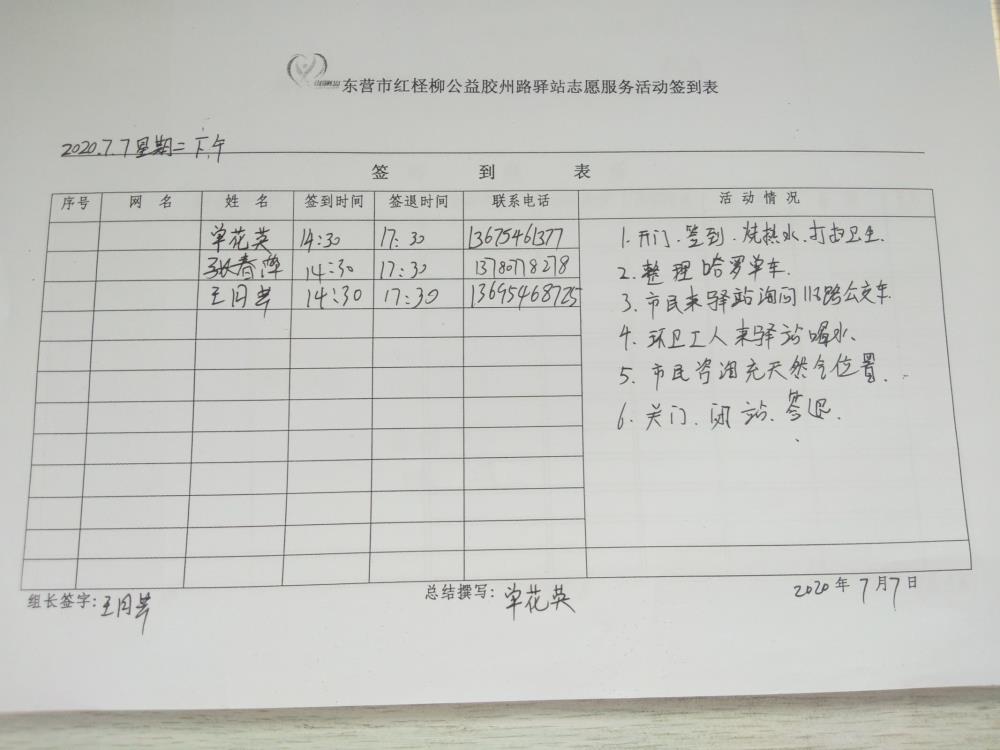 东营市红柽柳公益胶州路驿站志愿服务活动签到表
2020.7.7星期二下午
签 到 表
序号 网 名 姓 名 签到时间 签退时间 联系电话 活 动 情 况
单花英 14:30 17:30 13675461377
张春萍 14:30 17:30 13780778278
王月 14:30 17:30 13695468725
1.开门.签到.烧热水.打扫卫生.
2.整理哈罗单车.
3.市民来驿站询问 路公交车.
4.环卫工人来驿站喝水.
5.市民咨询充天然气位置.
6.关门.闭站.签退.
组长签字:王月
总结撰写:单花英
2020年7月7日